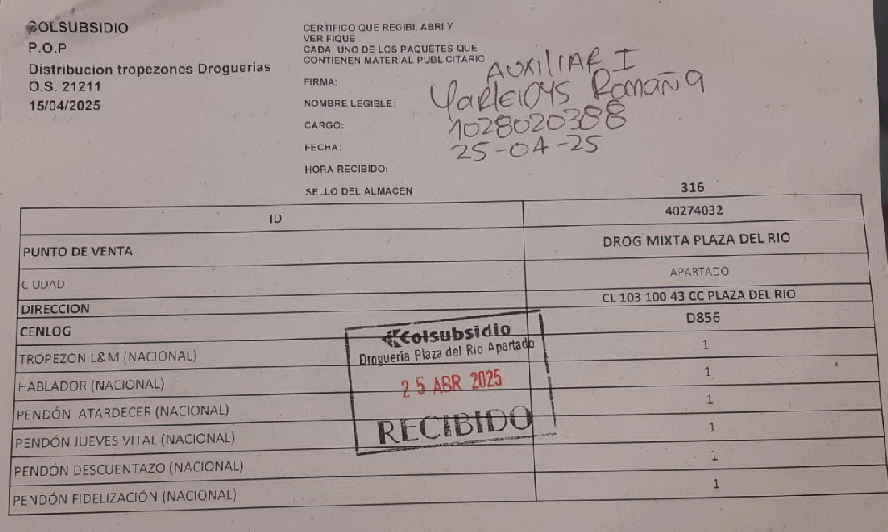 COLSUBSIDIO
P.O.P
Distribucion tropezones Droguerias
O.S. 21211
15/04/2025
CERTIFICO QUE RECIBI, ABRI Y
VERIFIQUE
CADA UNO DE LOS PAQUETES QUE
CONTIENEN MATERIAL PUBLICITARIO
FIRMA: AUXILIAR I
NOMBRE LEGIBLE: Yarleidys Romaña
CARGO: 1028020388
FECHA: 25-04-25
HORA RECIBIDO:
SELLO DEL ALMACEN 316
ID 40274032
PUNTO DE VENTA DROG MIXTA PLAZA DEL RIO
CIUDAD APARTADÓ
DIRECCION CL 103 100 43 CC PLAZA DEL RIO
CENLOG D856
TROPEZON L&M (NACIONAL) 1
HABLADOR (NACIONAL) 1
PENDÓN ATARDECER (NACIONAL) 1
PENDÓN JUEVES VITAL (NACIONAL) 1
PENDÓN DESCUENTAZO (NACIONAL) 1
PENDÓN FIDELIZACIÓN (NACIONAL) 1
Colsubsidio
Droguería Plaza del Rio Apartado
25 ABR 2025
RECIBIDO